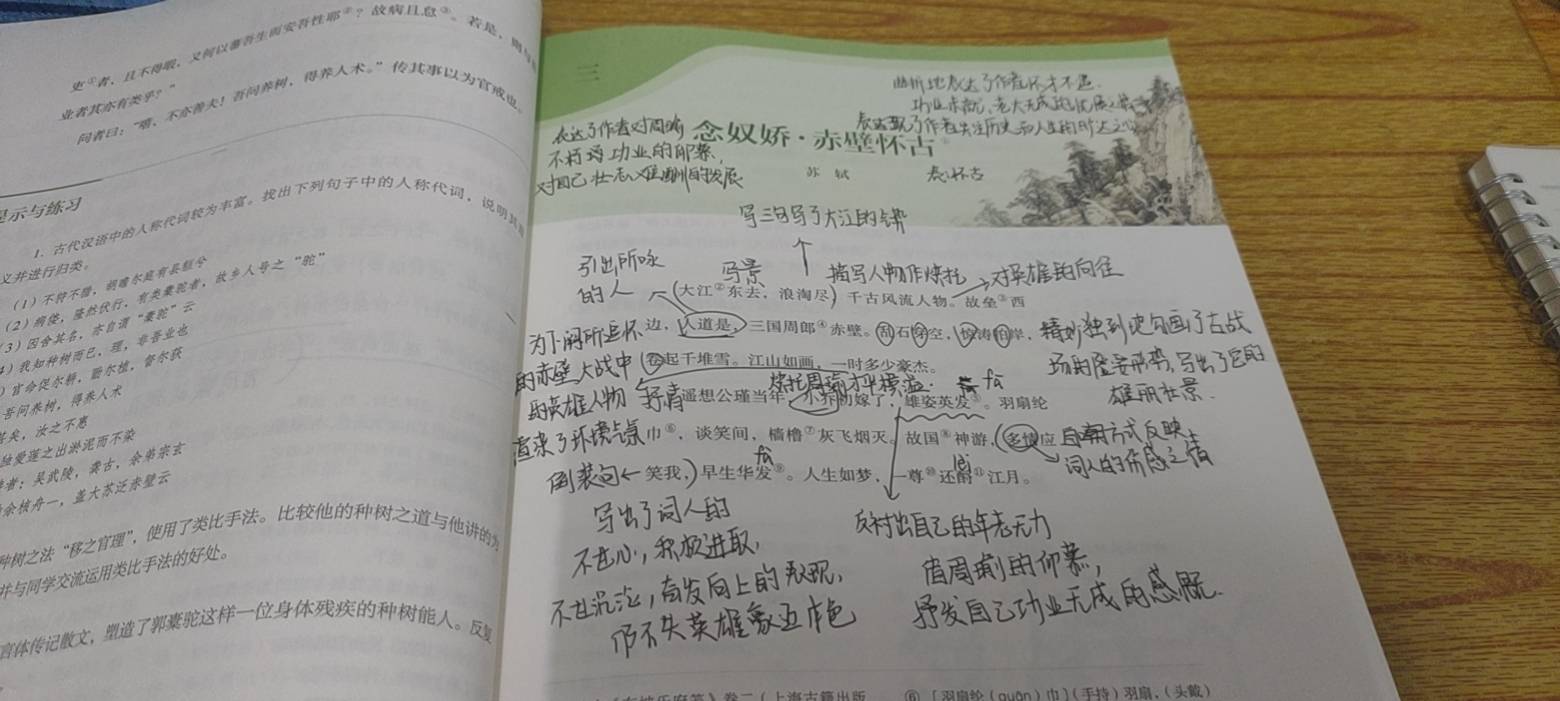 吏①者，且不得暇，又何以蕃吾生而安吾性耶②？故病且怠③。若是，则与
业者其亦有类乎？”
问者曰：“嘻，不亦善夫！吾问养树，得养人术。”传其事以为官戒也。
提示与练习
1. 古代汉语中的人称代词较为丰富。找出下列句子中的人称代词，说明其
义并进行归类。
（1）不狩不猎，胡瞻尔庭有县貆兮
（2）病偻，隆然伏行，有类橐驼者，故乡人号之“驼”
（3）因舍其名，亦自谓“橐驼”云
）我知种树而已，理，非吾业也
）官命促尔耕，勖尔植，督尔获
吾问养树，得养人术
甚矣，汝之不惠
独爱莲之出淤泥而不染
者：吴武陵，龚古，余弟宗玄
余核舟一，盖大苏泛赤壁云
种树之法“移之官理”，使用了类比手法。比较他的种树之道与他讲的为
并与同学交流运用类比手法的好处。
言体传记散文，塑造了郭橐驼这样一位身体残疾的种树能人。反复
三
曲折地表达了作者怀才不遇
功业未就、老大无成的
表现了作者关注历史和人生的旷达之心
表达了作者对周瑜
不朽功业的仰慕，
对自己壮志难酬的
念奴娇·赤壁怀古
苏 轼
怀古
写三句写了大江的
引出所咏
的人
写景
描写人物作烘托
对英雄的向往
大江②东去，浪淘尽，千古风流人物。故垒③西
边，人道是，三国周郎④赤壁。乱石穿空，惊涛拍岸，
卷起千堆雪。江山如画，一时多少豪杰。
为下阕所追怀
的赤壁大战中
的英雄人物
渲染了环境气氛
精妙独到地勾画了古战
场的险要形势，写出了它的
雄丽壮景
抒情
烘托周瑜才华横溢
fā
遥想公瑾当年，小乔初嫁了，雄姿英发⑤。羽扇纶
巾⑥，谈笑间，樯橹⑦灰飞烟灭。故国⑧神游，多情应
笑我，早生华发⑨。人生如梦，一尊⑩还酹⑪江月。
fà
lèi
倒装句
自嘲方式反映
词人的伤感之情
写出了词人的
不甘心，积极进取，
不甘沉沦，奋发向上的表现，
仍不失英雄豪迈本色
反衬出自己的年老无力
借周瑜的仰慕，
抒发自己功业无成的感慨.
《东坡乐府笺》卷二（上海古籍出版
⑥ ［羽扇纶（guān）巾］（手持）羽扇，（头戴）